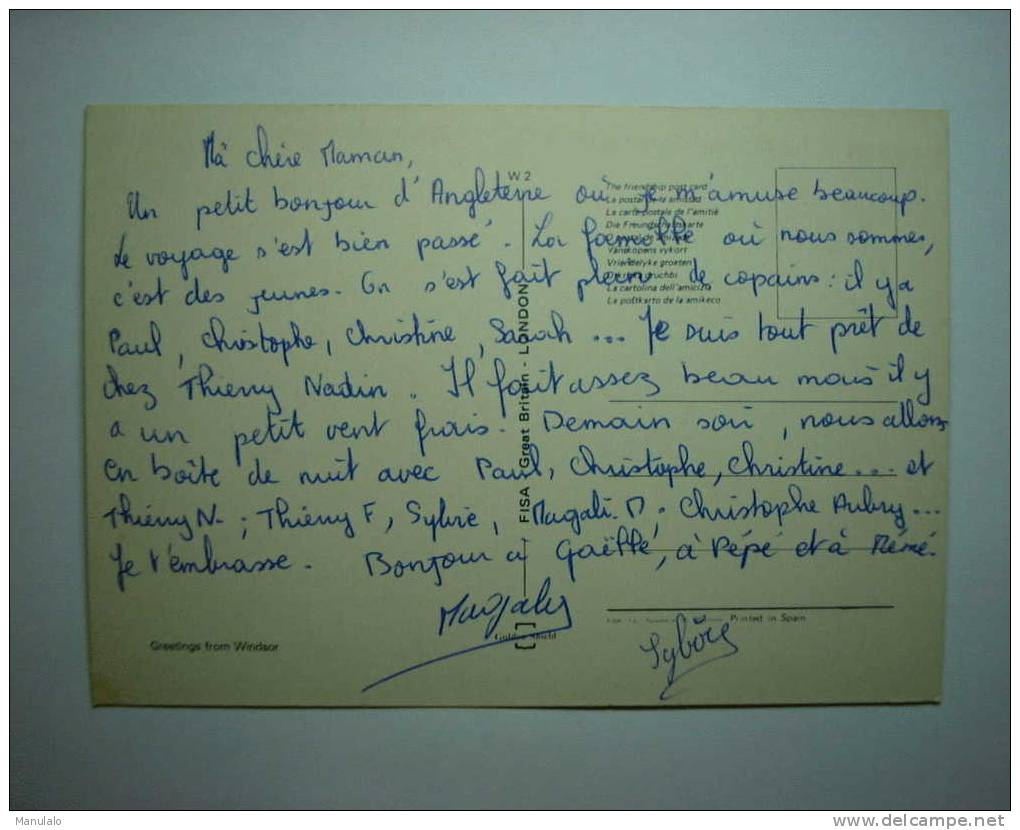 Ma chère Maman,
Un petit bonjour d'Angleterre où je m'amuse beaucoup.
Le voyage s'est bien passé. La famille où nous sommes,
c'est des jeunes. On s'est fait pleins de copains : il y a
Paul, Christophe, Christine, Sarah ... Je suis tout prêt de
chez Thierry Nadin. Il fait assez beau mais il y
a un petit vent frais. Demain soir, nous allons
en boîte de nuit avec Paul, Christophe, Christine... et
Thierry N. ; Thierry F, Sylvie, Magali. M. Christophe Aubry...
Je t'embrasse. Bonjour à Gaëlle, à Pépé et à Mémé.
Magaly
W 2
The friendship post card
La postal de la amistad
La carte postale de l'amitié
Die Freundschaftskarte
Vänskapens vykort
Vriendelyke groeten
La cartolina dell'amicizia
La poŝtkarto de la amikeco
FISA - Great Britain - LONDON
Golden Shield
Printed in Spain
Greetings from Windsor
Manulalo
www.delcampe.net